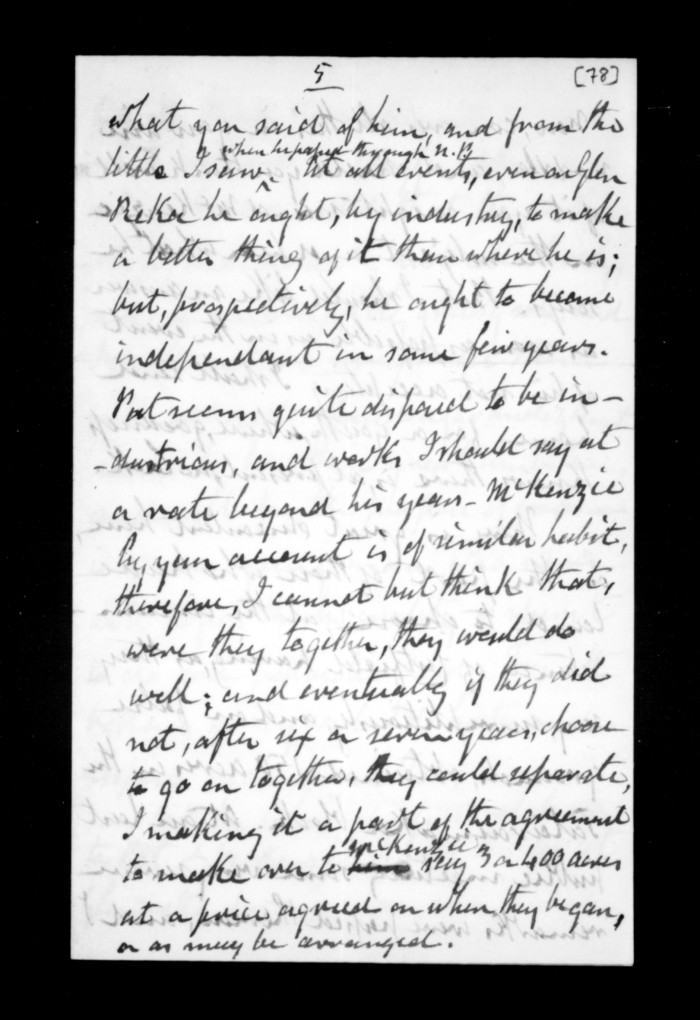 5
[78]
what you said of him, and from the
when he passed through N.P.
little I saw. At all events, even on Glen
ReKa he ought, by industry, to make
a better thing of it than where he is;
but, prospectively, he ought to become
independant in some few years.
Pat seems quite disposed to be in-
-dustrious, and works I should say at
a rate beyond his years - McKenzie
by your account is of similar habit,
therefore, I cannot but think that,
were they together, they would do
well; and eventually if they did
not, after six or seven years, choose
to go on together, they could separate,
I making it a part of the agreement
McKenzie
to make over to him say 3 or 400 acres
at a price agreed on when they began,
or as may be arranged.